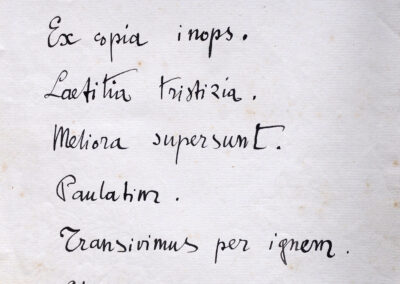 Ex copia inops.
Laetitia tristizia.
Meliora supersunt.
Paulatim.
Transivimus per ignem.